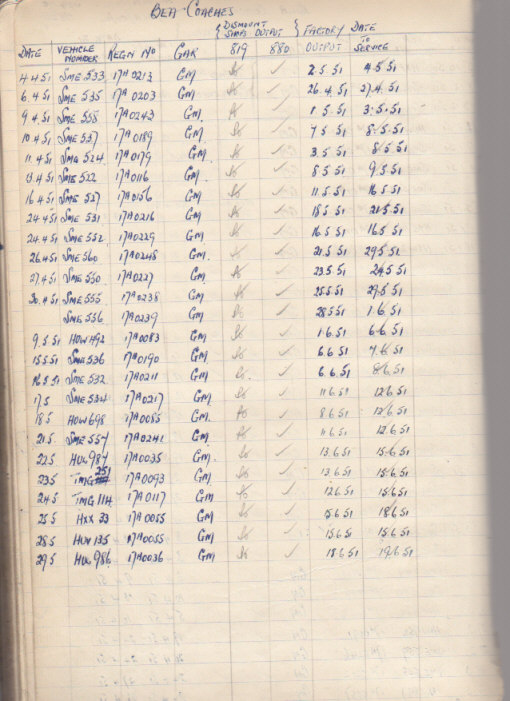 BEA - COACHES
DATE VEHICLE NUMBER REGN NO GAR { DISMOUNT SHOPS OUTPUT } 819 880 { FACTORY OUTPUT DATE TO SERVICE
4.4.51 SME 533 17A0213 GM ✓ 2.5.51 4.5.51
6.4.51 SME 535 17A0203 GM ✓ 26.4.51 27.4.51
9.4.51 SME 558 17A0243 GM ✓ 1.5.51 3.5.51
10.4.51 SME 537 17A0189 GM ✓ 7.5.51 8.5.51
11.4.51 SMG 524 17A0179 GM ✓ 3.5.51 8.5.51
13.4.51 SME 522 17A0116 GM ✓ 8.5.51 9.5.51
16.4.51 SME 527 17A0156 GM ✓ 11.5.51 16.5.51
24.4.51 SME 531 17A0216 GM ✓ 18.5.51 21.5.51
24.4.51 SME 552 17A0229 GM ✓ 16.5.51 16.5.51
26.4.51 SME 560 17A0248 GM ✓ 21.5.51 29.5.51
27.4.51 SME 550 17A0227 GM ✓ 23.5.51 24.5.51
30.4.51 SME 555 17A0238 GM ✓ 25.5.51 29.5.51
SME 556 17A0239 GM ✓ 28.5.51 1.6.51
9.5.51 HOW 492 17A0083 GM ✓ 1.6.51 6.6.51
15.5.51 SME 536 17A0190 GM ✓ 6.6.51 7.6.51
16.5.51 SME 532 17A0211 GM ✓ 6.6.51 8.6.51
17.5 SME 534 17A0217 GM ✓ 11.6.51 12.6.51
18.5 HOW 698 17A0085 GM ✓ 8.6.51 12.6.51
21.5 SME 557 17A0241 GM ✓ 11.6.51 12.6.51
22.5 HUL 987 17A0035 GM ✓ 13.6.51 15.6.51
23.5 TMG 251 17A0093 GM ✓ 13.6.51 15.6.51
24.5 TMG 114 17A0117 GM ✓ 12.6.51 15.6.51
25.5 HXX 33 17A0055 GM ✓ 15.6.51 18.6.51
28.5 135 17A0055 GM ✓ 15.6.51 15.6.51
29.5 HUL 986 17A0036 GM ✓ 18.6.51 19.6.51